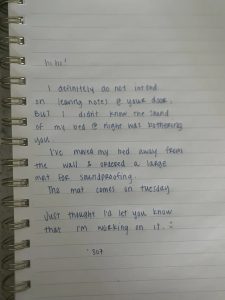 hi ho!
I definitely do not intend
on leaving notes @ your door.
But I didn't know the sound
of my bed @ night was bothering
you.
I've moved my bed away from
the wall & ordered a large
mat for soundproofing.
The mat comes on Tuesday.
Just thought I'd let you know
that I'm working on it. :)
- 307